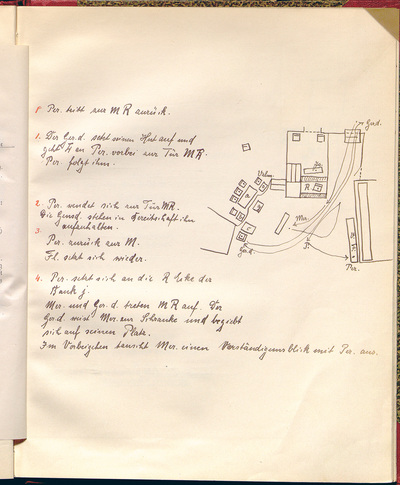 Per. tritt zur MR zurück.
1. Der Ger.d. setzt seinen Hut auf und
geht H an Per. vorbei zur Tür MR.
Per. folgt ihm.
2. Per. wendet sich zur Tür MR.
Die Gend. stehen in Bereitschaft ihn
aufzuhalten.
3. Per. zurück zur M.
Fl. setzt sich wieder.
4. Per. setzt sich an die R Ecke der
Bank j.
Mer. und Ger.d. treten MR auf. Der
Ger.d. weist Mer. zur Schranke und begiebt
sich auf seinen Platz.
Im Vorbeigehen tauscht Mer. einen Verständigungsblick mit Per. aus.
Gad.
R
Mer.
Gad.
Per.